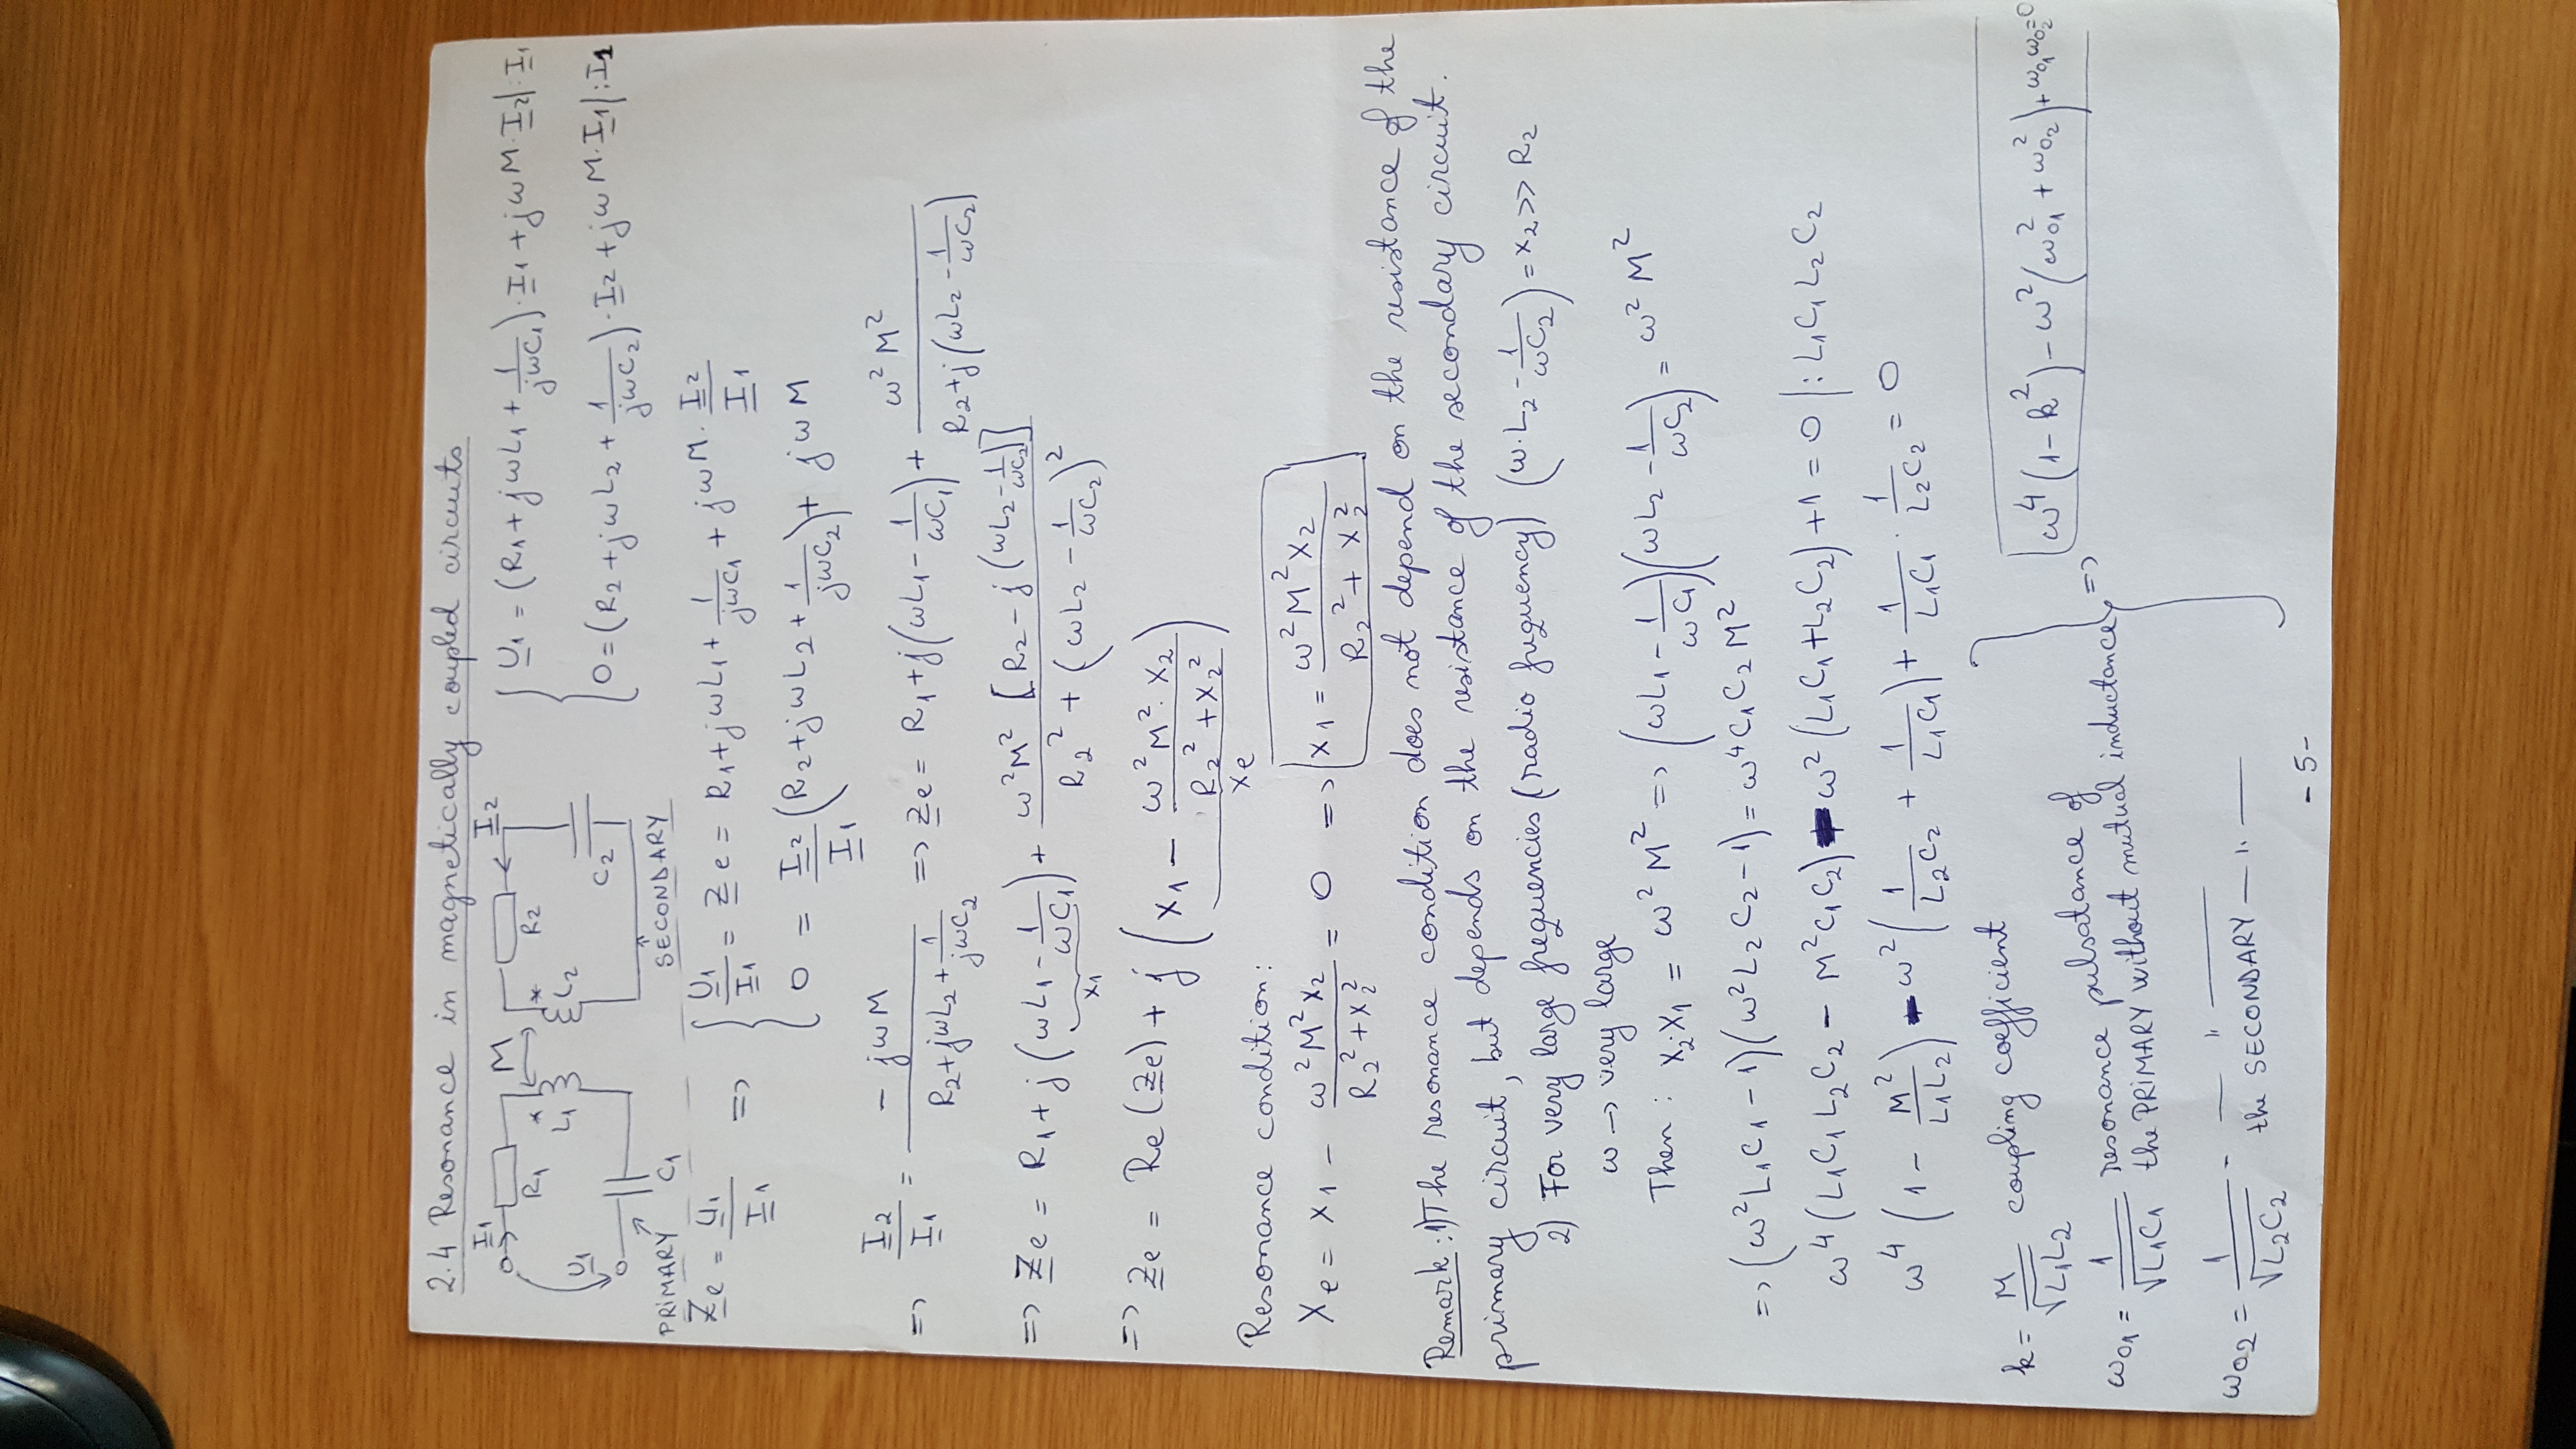 2.4 Resonance in magnetically coupled circuits
I1 R1 * L1 M * L2 R2 I2
U1 C1 C2
PRIMARY SECONDARY
{ U1 = (R1 + jωL1 + 1/(jωC1)) · I1 + jωM · I2 | : I1
{ 0 = (R2 + jωL2 + 1/(jωC2)) · I2 + jωM · I1 | : I1
Ze = U1/I1 => { U1/I1 = Ze = R1 + jωL1 + 1/(jωC1) + jωM · I2/I1
{ 0 = I2/I1 (R2 + jωL2 + 1/(jωC2)) + jωM
=> I2/I1 = - jωM/(R2 + jωL2 + 1/(jωC2)) => Ze = R1 + j(ωL1 - 1/(ωC1)) + ω²M²/(R2 + j(ωL2 - 1/(ωC2)))
=> Ze = R1 + j(ωL1 - 1/(ωC1)) + ω²M² [R2 - j(ωL2 - 1/(ωC2))]/(R2² + (ωL2 - 1/(ωC2))²)
X1
=> Ze = Re(Ze) + j(X1 - ω²M² · X2/(R2² + X2²))
Xe
Resonance condition:
Xe = X1 - ω²M²X2/(R2² + X2²) = 0 => X1 = ω²M²X2/(R2² + X2²)
Remark: 1) The resonance condition does not depend on the resistance of the
primary circuit, but depends on the resistance of the secondary circuit.
2) For very large frequencies (radio fuguency) (ω·L2 - 1/(ωC2)) = X2 >> R2
ω → very large
Then: X2·X1 = ω²M² => (ωL1 - 1/(ωC1))(ωL2 - 1/(ωC2)) = ω²M²
=> (ω²L1C1 - 1)(ω²L2C2 - 1) = ω⁴C1C2M²
ω⁴(L1C1L2C2 - M²C1C2) - ω²(L1C1 + L2C2) + 1 = 0 | : L1C1L2C2
ω⁴(1 - M²/(L1L2)) - ω²(1/(L2C2) + 1/(L1C1)) + 1/(L1C1) · 1/(L2C2) = 0
k = M/√(L1L2) coupling coefficient
ω01 = 1/√(L1C1) resonance pulsatance of
the PRIMARY without mutual inductance
} => ω⁴(1 - k²) - ω²(ω01² + ω02²) + ω01²ω02² = 0
ω02 = 1/√(L2C2) - — " —
the SECONDARY — " —
- 5 -